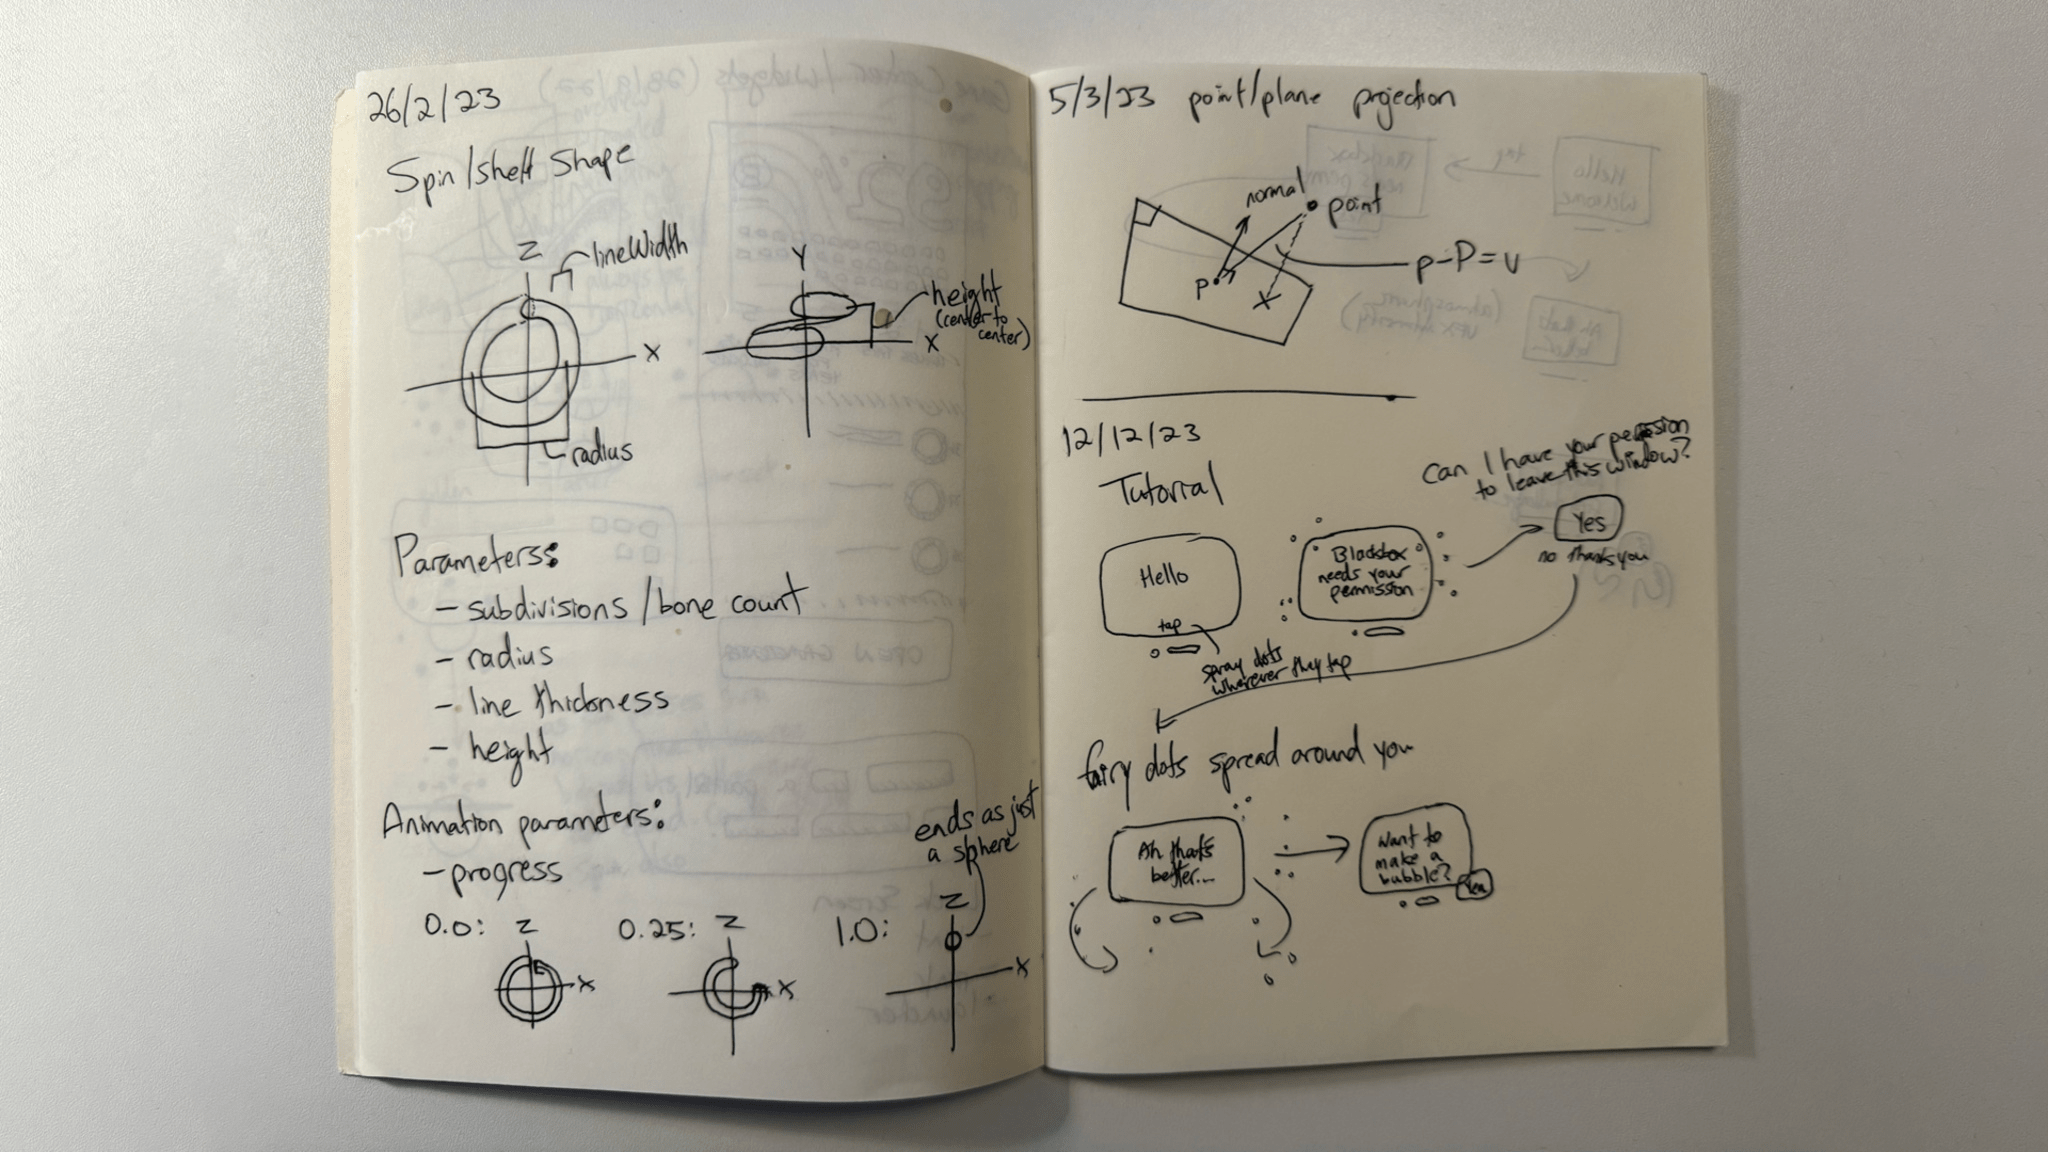 26/2/23
Spin/shell shape
Z
lineWidth
X
radius
Y
height
(center to
center)
X
Parameterss:
- subdivisions/bone count
- radius
- line thickness
- height
Animation parameters:
- progress
ends as just
a sphere
0.0:
Z
X
0.25:
Z
X
1.0:
Z
X
5/3/23 point/plane projection
normal
point
P
p-P=v
X
12/12/23
Tutorial
Hello
tap
spray dots
wherever they tap
Blackbox
needs your
permission
Can I have your permission
to leave this window?
Yes
no thank you
fairy dots spread around you
Ah that's
better...
Want to
make a
bubble?
Yea